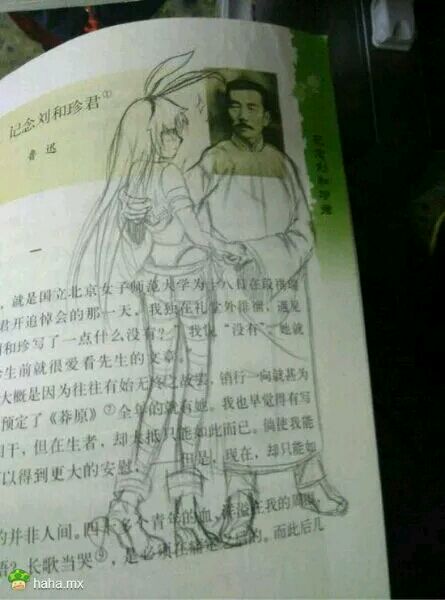 记念刘和珍君①
鲁迅
一
，就是国立北京女子师范大学为十八日在段祺瑞
君开追悼会的那一天，我独在礼堂外徘徊，遇见
和珍写了一点什么没有？”我说“没有”她就
生前就很爱看先生的文章。”
大概是因为往往有始无终之故罢，销行一向就甚为
预定了《莽原》②全年的就有她。我也早觉得有写
干，但在生者，却大抵只能如此而已。倘使我能
以得到更大的安慰，但是，现在，却只能如
的并非人间。四十多个青年的血，洋溢在我的周围
语？长歌当哭④，是必须在痛定之后的。而此后几
记念刘和珍君
haha.mx